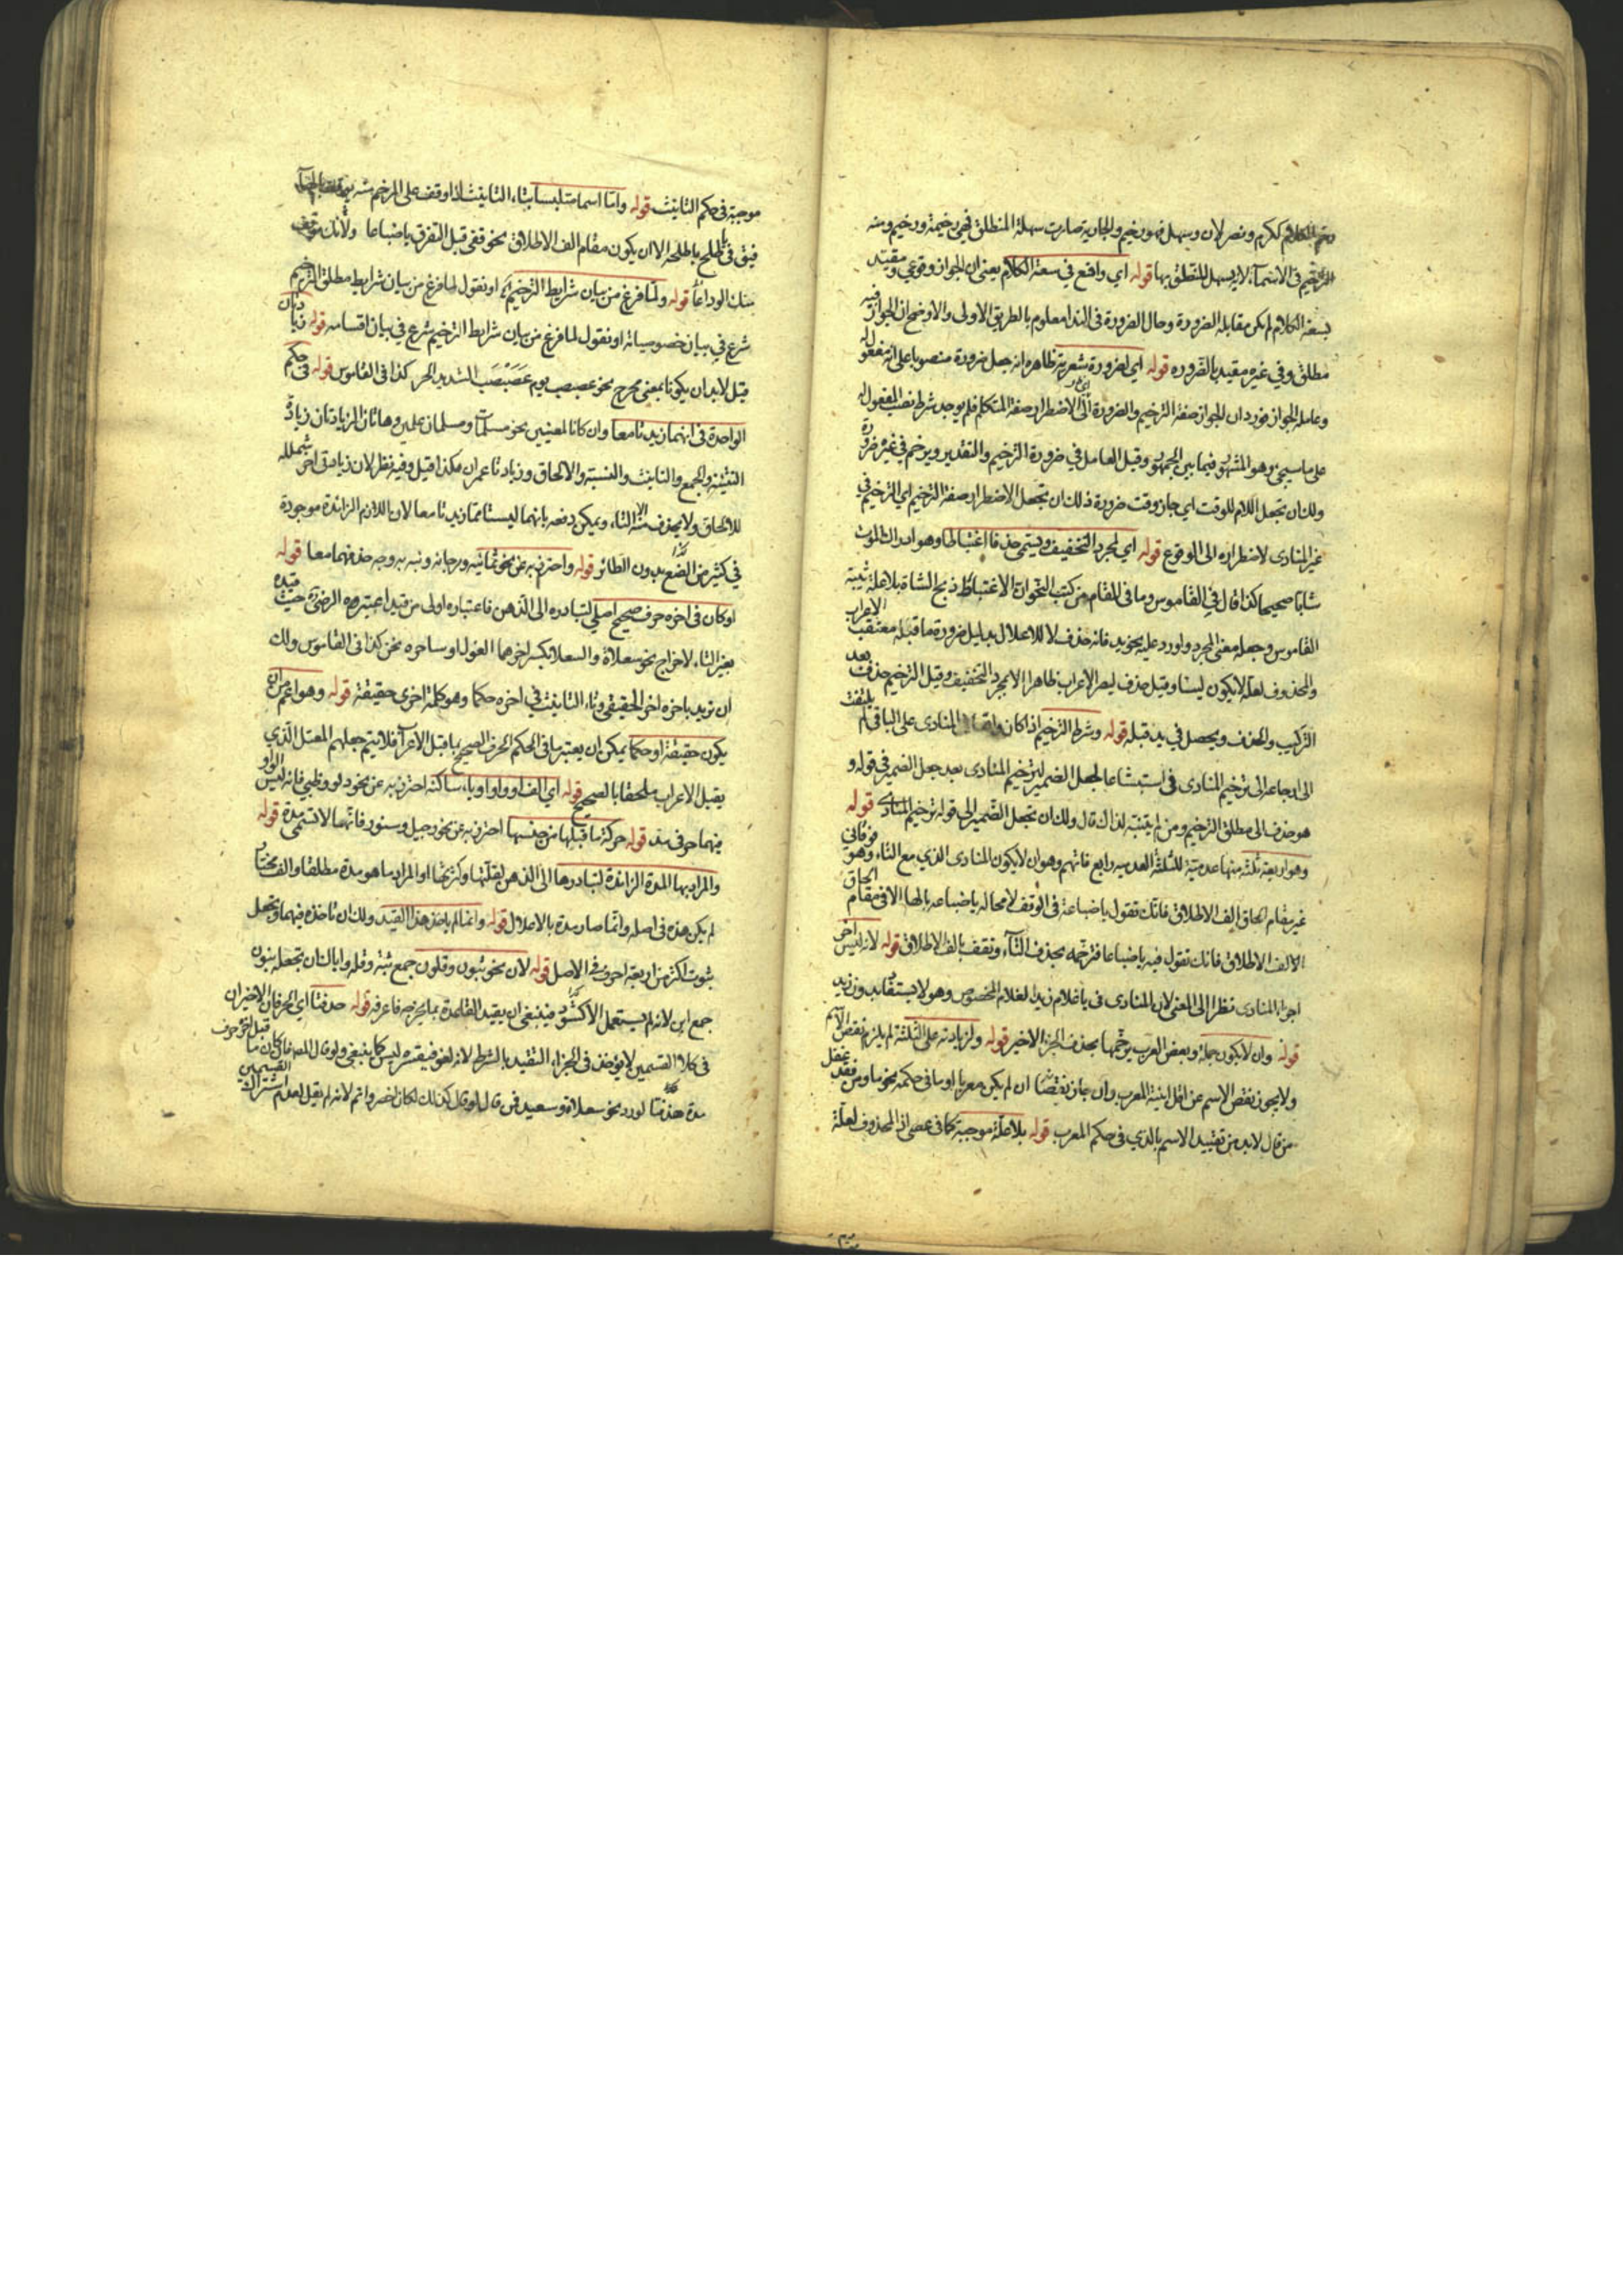 رخم الكلام ككرم ونصر لان وسهل فهو رخيم والجارية صارت سهلة المنطلق فهي رخيمة ورخيم ومنه
الترخيم في الاسماء لا يسهل المنطق بها قوله اي واقع في سعة الكلام يعني ان الجواز وقوعي ومقيد
بسعة الكلام لم يكن مقابلة الضرورة وحال الضرورة في الندا معلوم بالطريق الاولى والاوضح ان الجواز فيه
مطلق وفي غيره مقيد بالضرورة قوله اي لضرورة شعرية ظاهره انه جعل ضرورة منصوبا على انه مفعول له
وعامله الجواز فورد ان الجواز صفة الترخيم والضرورة اي الاضطرار صفة المتكلم فلم يوجد شرط نصب المفعول له
على ما سيجئ وهو المشهور فيما بين الجمهور وقيل العامل في ضرورة الترخيم والتقدير ويرخم في غيره ضرورة
ولك ان تجعل اللام للوقت اي جاز وقت ضرورة ذلك ان تجعل الاضطرار صفة الترخيم اي الترخيم في
غير المنادى لاضطراره الى الوقوع قوله اي لمجرد التخفيف ويسمى حذفا اغتباطا وهو ادراك الموت
شابا صحيحا كذا قال في القاموس وما في المقام من كتب النحو ان الاغتباط ذبح الشاة بلا علة
القاموس وجعله معنى المجرد واورد عليه نحو يد فانه حذف لا للاعلال بدليل ضرورة ما قبله معتقب الاعراب
والمحذوف لعلة لا يكون ليسا وقيل حذف ليصر الاعراب ظاهرا لا لمجرد التخفيف وقيل الترخيم حذف بعد
التركيب والحذف ويحصل في يد قبله قوله وشرط الترخيم اذا كان واقعا المنادى على الباقي لم يلتفت
الى ارجاعه الى ترخيم المنادى في استبشاعا لجعل الضمير لترخيم المنادى بعد جعل الضمير في قوله و
هو حذف الى مطلق الترخيم ومن لم يتنبه لذاك قال ولك ان تجعل الضمير الى قوله ترخيم المنادى قوله
وهو اربعة ثلثة منها عدمية للثلثة العدمية رابع فاتهم وهو ان لا يكون المنادى الذي مع التاء وهو
غير مقام الحاق الف الاطلاق فانك تقول يا ضباعة في الوقف لا محالة يا ضباعه بالهاء الا في مقام الحاق
الالف الاطلاق فانك تقول فيه يا ضباعا فترخمه بحذف التاء وتقف بالف الاطلاق قوله لانه ليس آخر
اجزاء المنادى نظرا الى المعنى لان المنادى في يا غلام زيد الغلام المخصوص وهو لا يستفاد بدون زيد
قوله وان لا يكون جملة وبعض العرب يرخمها بحذف الجزء الاخير قوله ولزيادته على الثلثة لم يلزم نقص الاسم
ولا يجوز نقص الاسم عن اقل ابنية المعرب وان جاز نقيضا ان لم يكن معربا او ما في حكمه نحو ما ومن فقد غفل
من قال لا بد من تقييد الاسم بالذي في حكم المعرب قوله بلا علة موجبة كما في عصى اذ المحذوف لعلة
موجبة في حكم الثابت قوله واما اسما متلبسا بتاء التانيث اذا وقف على المرخم
فيق في طلح يا طلحة الا ان يكون مقام الف الاطلاق نحو قفي قبل التفرق يا ضباعا ولا يك موقف
منك الوداعا قوله ولما فرغ من بيان شرايط الترخيم او نقول لما فرغ من بيان شرايط مطلق الترخيم
شرع في بيان خصوصياته او نقول لما فرغ من بيان شرايط الترخيم شرع في بيان اقسامه قوله زيادتان
قيل لا بد ان يكونا بمعنى يخرج نحو عصبصب يوم عصبصب الشديد الحر كذا في القاموس قوله في حكم
الواحدة في انهما زيدتا معا وان كانا لمعنيين نحو مسلمات ومسلمان علمين وهاتان الزيادتان زيادة
التثنية والجمع والتانيث والنسبة والالحاق وزيادتا عمران هكذا قيل وفيه نظر لان زيادتي آخر شمللة
للالحاق ولا يحذف منه الا التاء ويمكن دفعه بانهما ليستا مما زيدتا معا لان اللازم الزائدة موجودة
في كثير من الضع بدون الطائر قوله واحترز به عن نحو ثمانية ومرجانة ونبه به وجه حذفهما معا قوله
او كان في اخره حرف صحيح اصلي لتبادره الى الذهن فاعتباره اولى من قيد اعتبره الرضي حيث قيده
بغير التاء لاخراج نحو سعلاة والسعلا بكسر اخوهما الغول او ساحره نحن كذا في القاموس ولك
ان تريد باخره آخر الحقيقي وتاء التانيث في اخره حكما وهو كلمة اخرى حقيقة قوله وهو اعم من ان
يكون حقيقة او حكما يمكن ان يعتبر ما في الحكم الحرف الصحيح بما قبل الاعراب فلا يتم جعلهم المعتل الذي
يقبل الاعراب ملحقا بالصحيح قوله اي الف او واو او ياء ساكنة احترز به عن نحو دلو وظبي فانه ليس الواو
فيهما حرفي مد قوله حركة ما قبلها من جنسها احترز به عن نحو جيل وسنور فانهما لا تسمى مدة قوله
والمراد بها المدة الزائدة لتبادرها الى الذهن لقلتها وكثرتها او المراد ما هو مدة مطلقا والف مختار
لم يكن هذه في اصله وانما صار مدة بالاعلال قوله وانما لم ياخذ هذا القيد ولك ان تاخذه فيهما وتجعل
بثوت اكثر من اربعة احرف في الاصل قوله لان نحو ثبون وقلون جمع ثبة وقلة وايا لك ان تجعله بنون
جمع ابن لانه لم يستعمل الا كشذوذ فينبغي ان يقيد القاعدة بما يخرجه فاعرفه قوله حذفتا اي الحرفان الاخيران
في كلا القسمين لا يؤخذ في الجزاء التقييد بالشرط لانه لغو فيقصره ليس كما ينبغي ولو قال المص فان كان ما قبل آخره حرف
مدة حذفتا لورد نحو سعلاة وسعيد فمن قال لو قال كذلك لكان اخصر واتم لانه لم يقل لعدم اشتراك القسمين